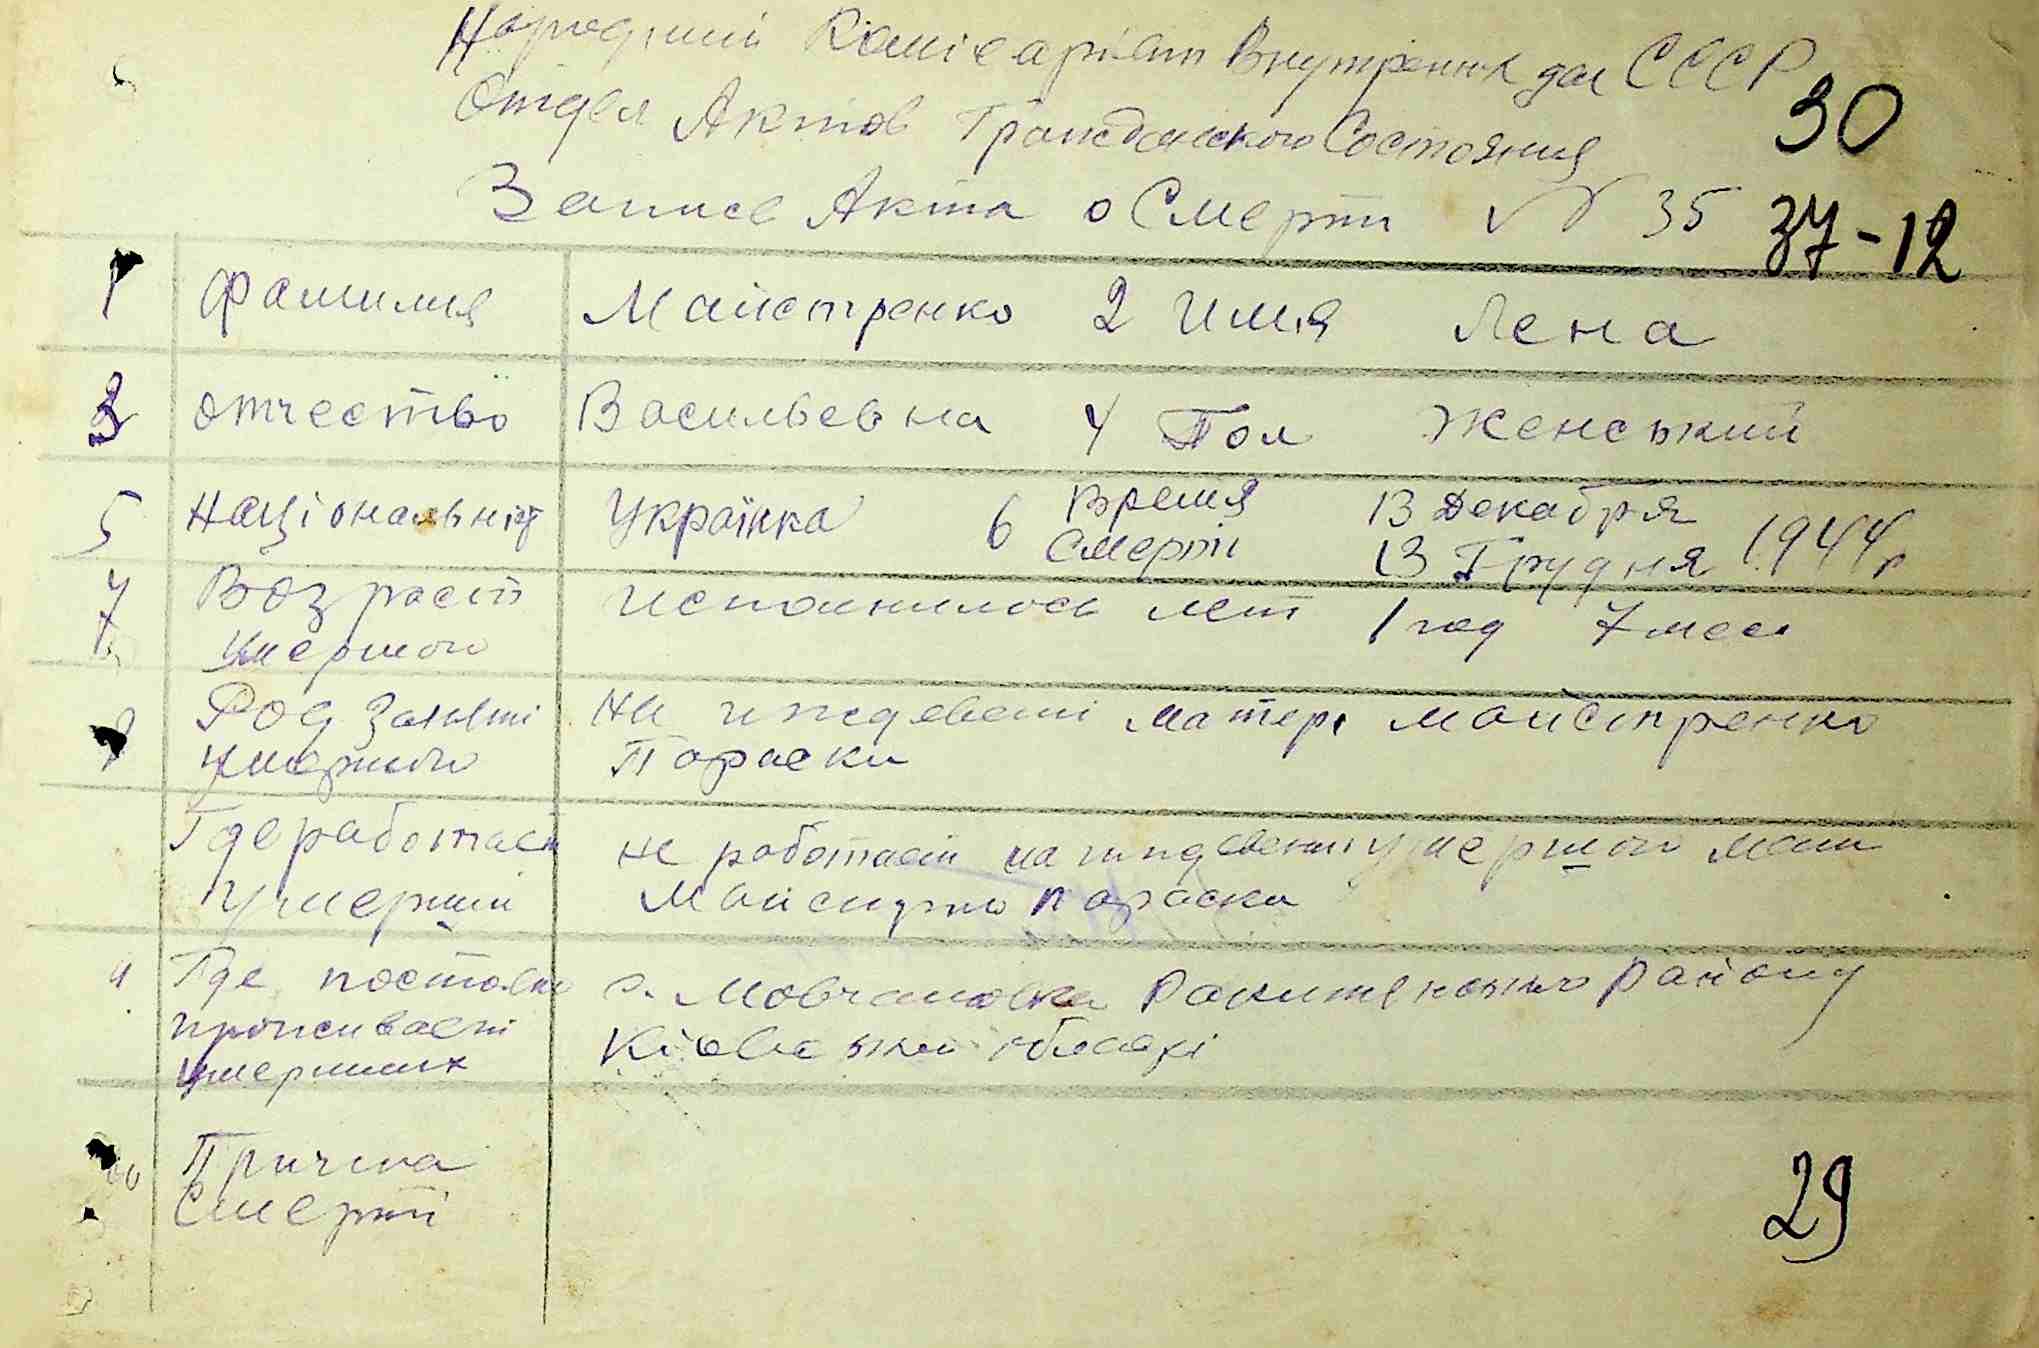 Народний Комісаріат Внутренних дел СССР
Отдел Актов Гражданского Состояния
30
Запись Акта о Смерти № 35
37-12
1 Фамилия Майстренко 2 Имя Лена
3 отчество Васильевна 4 Пол Женський
5 Національніст Українка 6 Время Смерті 13 Декабря
13 Грудня 1944 г
7 Возраст умершого исполнилось лет 1 год 7 мес
Род Заняті умершого На иждевені матері Майстренко
Параски
Где работает умерший не работает на иждевении умершого мати
Параски
Где проживает умерших с. Мовчановка Ракитянського району
Київської області
10 Причина
Смерті
29